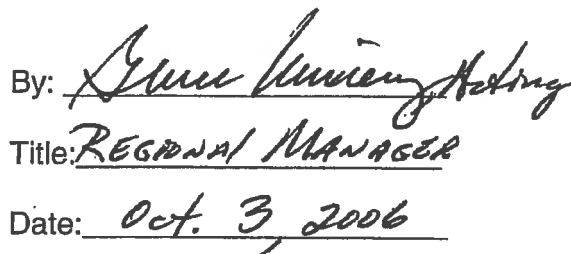 By: Acting
Title: REGIONAL MANAGER
Date: Oct. 3, 2006